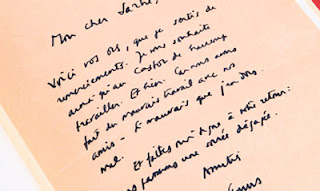 Mon cher Sartre,
Voici vos , que je sortis de
remerciements. Je vous souhaite
ainsi qu'au Castor de beaucoup
travailler. Et bien. Car nous avons
fait du mauvais travail avec nos
amis - si mauvais que j'en dors
mal.
Et faites-moi signe à votre retour:
nous passerons une soirée dégagée.
Amitiés